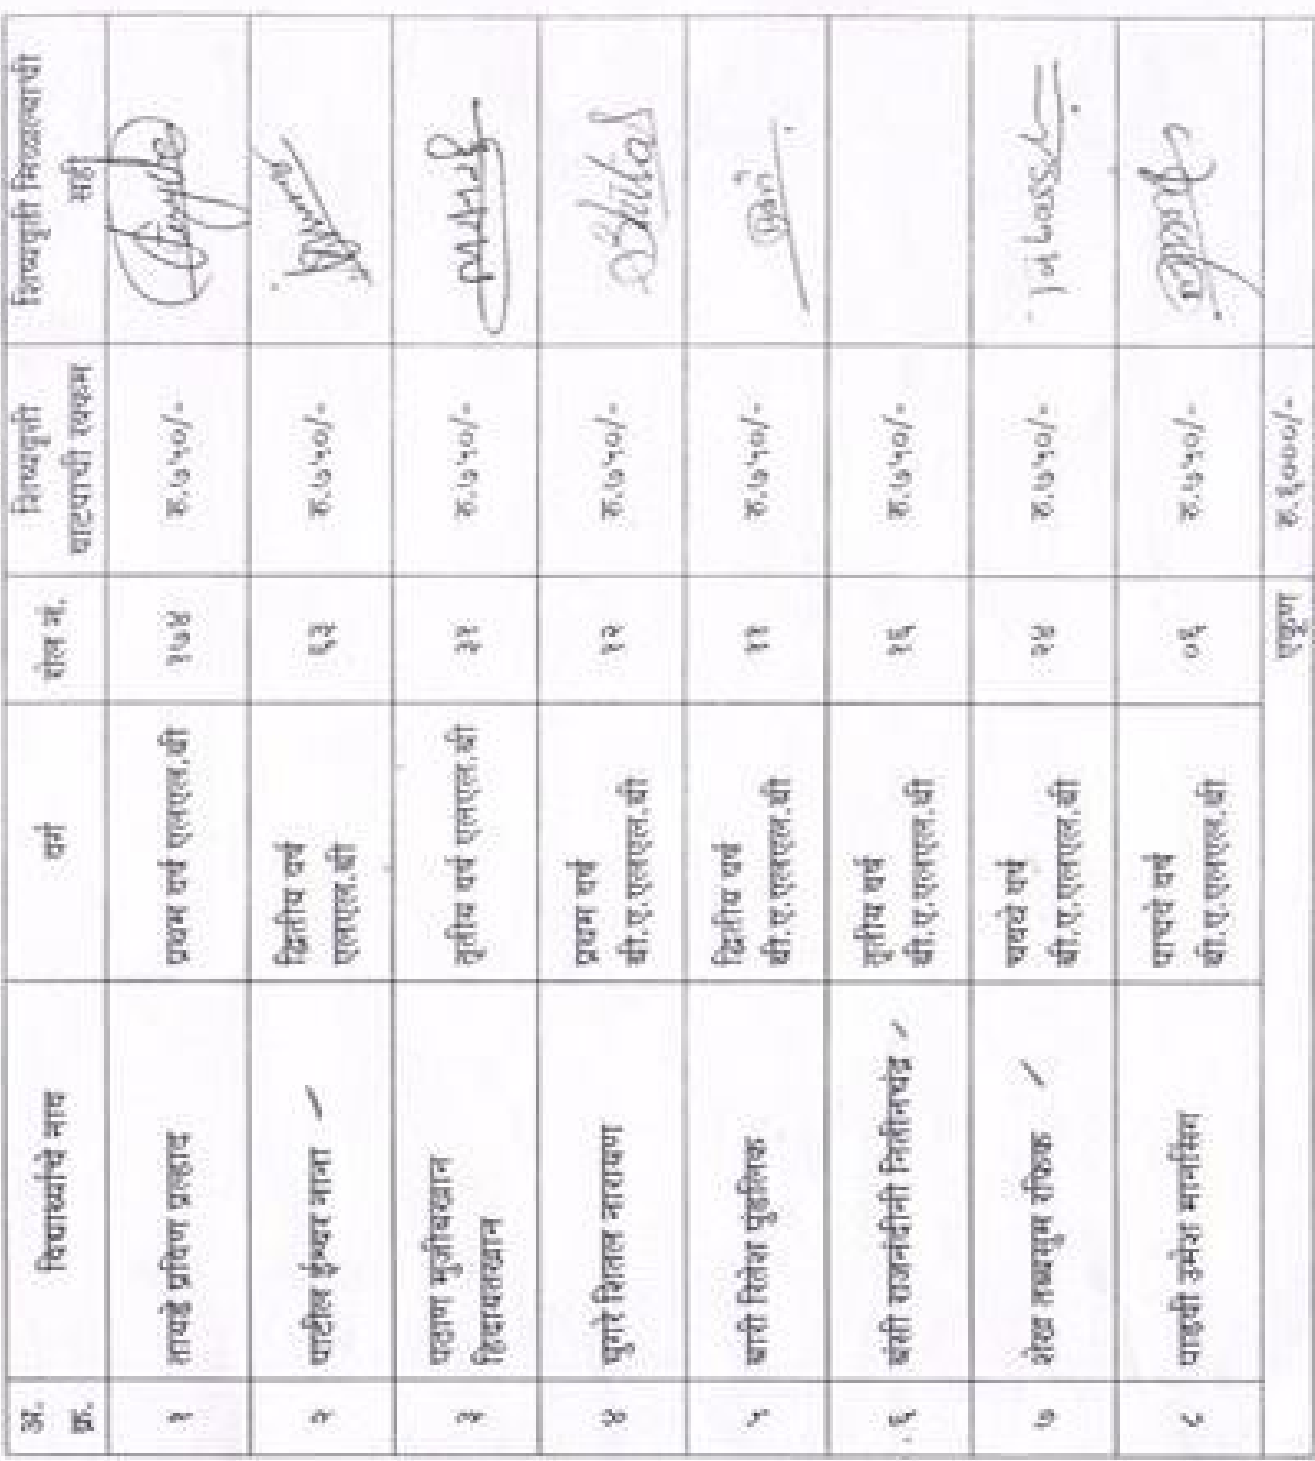 अ. क्र. विद्यार्थ्याचे नाव वर्ग रोल नं. शिष्यवृत्ती वाटपाची रक्कम शिष्यवृत्ती मिळाल्याची सही
१ तायडे प्रविण प्रल्हाद प्रथम वर्ष एलएल.बी १७४ रु.७५०/-
२ पाटील ईश्वर नाना द्वितीय वर्ष एलएल.बी ६३ रु.७५०/-
३ पठाण मुजीबखान हिदायतखान तृतीय वर्ष एलएल.बी ३१ रु.७५०/-
४ घुगरे शितल नारायण प्रथम वर्ष बी.ए.एलएल.बी १२ रु.७५०/-
५ बारी रितेश पुंडलिक द्वितीय वर्ष बी.ए.एलएल.बी ११ रु.७५०/-
६ बंसी राजनंदीनी नितीनचंद्र तृतीय वर्ष बी.ए.एलएल.बी १६ रु.७५०/-
७ शेख तब्बसुम रफिक चवथे वर्ष बी.ए.एलएल.बी २४ रु.७५०/-
८ पाडवी उमेश मानसिंग पाचवे वर्ष बी.ए.एलएल.बी ०६ रु.७५०/-
एकुण रु.६०००/-